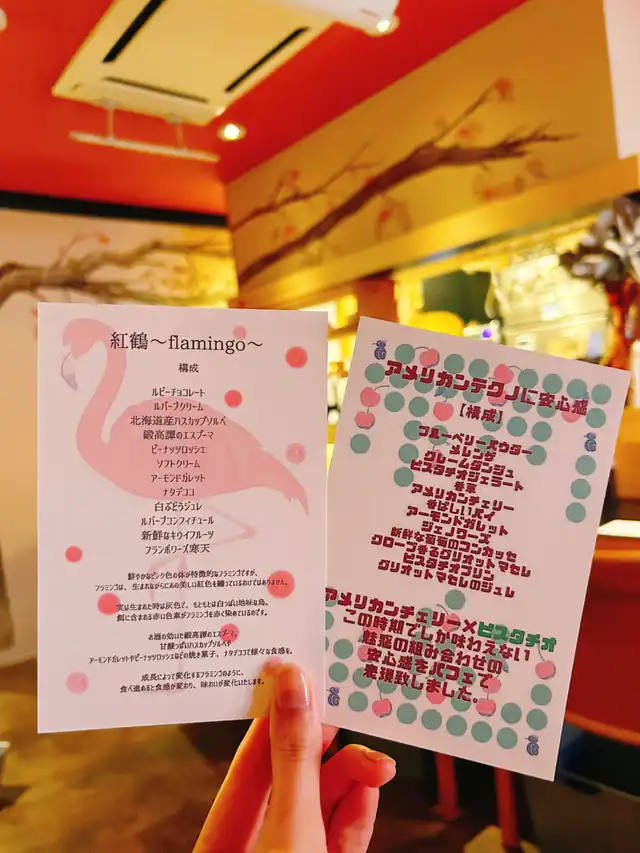 紅鶴～flamingo～
構成
ルビーチョコレート
ルバーブクリーム
北海道産ハスカップソルベ
鍛高譚のエスプーマ
ピーナッツロッシェ
ソフトクリーム
アーモンドガレット
ナタデココ
白ぶどうジュレ
ルバーブコンフィチュール
新鮮なキウイフルーツ
フランボワーズ寒天
鮮やかなピンク色の体が特徴的なフラミンゴですが、
フラミンゴは、生まれながらにあの美しい紅色を纏っているわけではありません。
実は生まれた時は灰色で、もともとは白っぽい地味な鳥。
餌に含まれる赤い色素がフラミンゴを赤く染めているのです。
お酒の効いた鍛高譚のエスプーマ、
甘酸っぱいハスカップソルベや
アーモンドガレットやピーナッツロッシェなどの焼き菓子、ナタデココで様々な食感を。
成長によって変化するフラミンゴのように、
食べ進めると食感が変わり、味わいが変化いたします。
アメリカンテクノに安心感
【構成】
ブルーベリーパウダー
メレンゲ
クレームダンジュ
ピスタチオジェラート
冬菜
アメリカンチェリー
香ばしいパイ
アーモンドガレット
ジェノワーズ
新鮮な葡萄のコンカッセ
クローブ香るグリオットマセレ
ピスタチオプリン
グリオットマセレのジュレ
アメリカンチェリー×ピスタチオ
この時期でしか味わえない
魅惑の組み合わせの
安心感をパフェで
表現致しました。